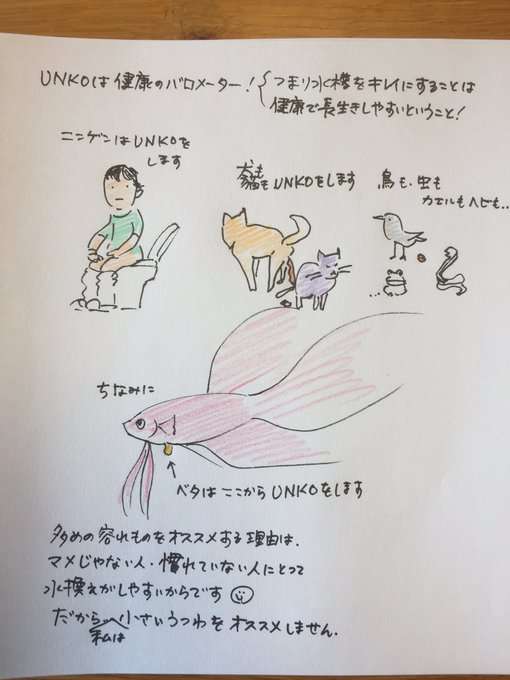 UNKOは健康のバロメーター!
つまり水槽をキレイにすることは
健康で長生きしやすいということ!
ニンゲンはUNKOを
します
犬も
猫もUNKOをします
鳥も、虫も
カエルもヘビも..
ちなみに
ベタはここからUNKOをします
多めの容れものをオススメする理由は、
マメじゃない人・慣れていない人にとって
水換えがしやすいからです
だから私は小さいうつわをオススメしません.